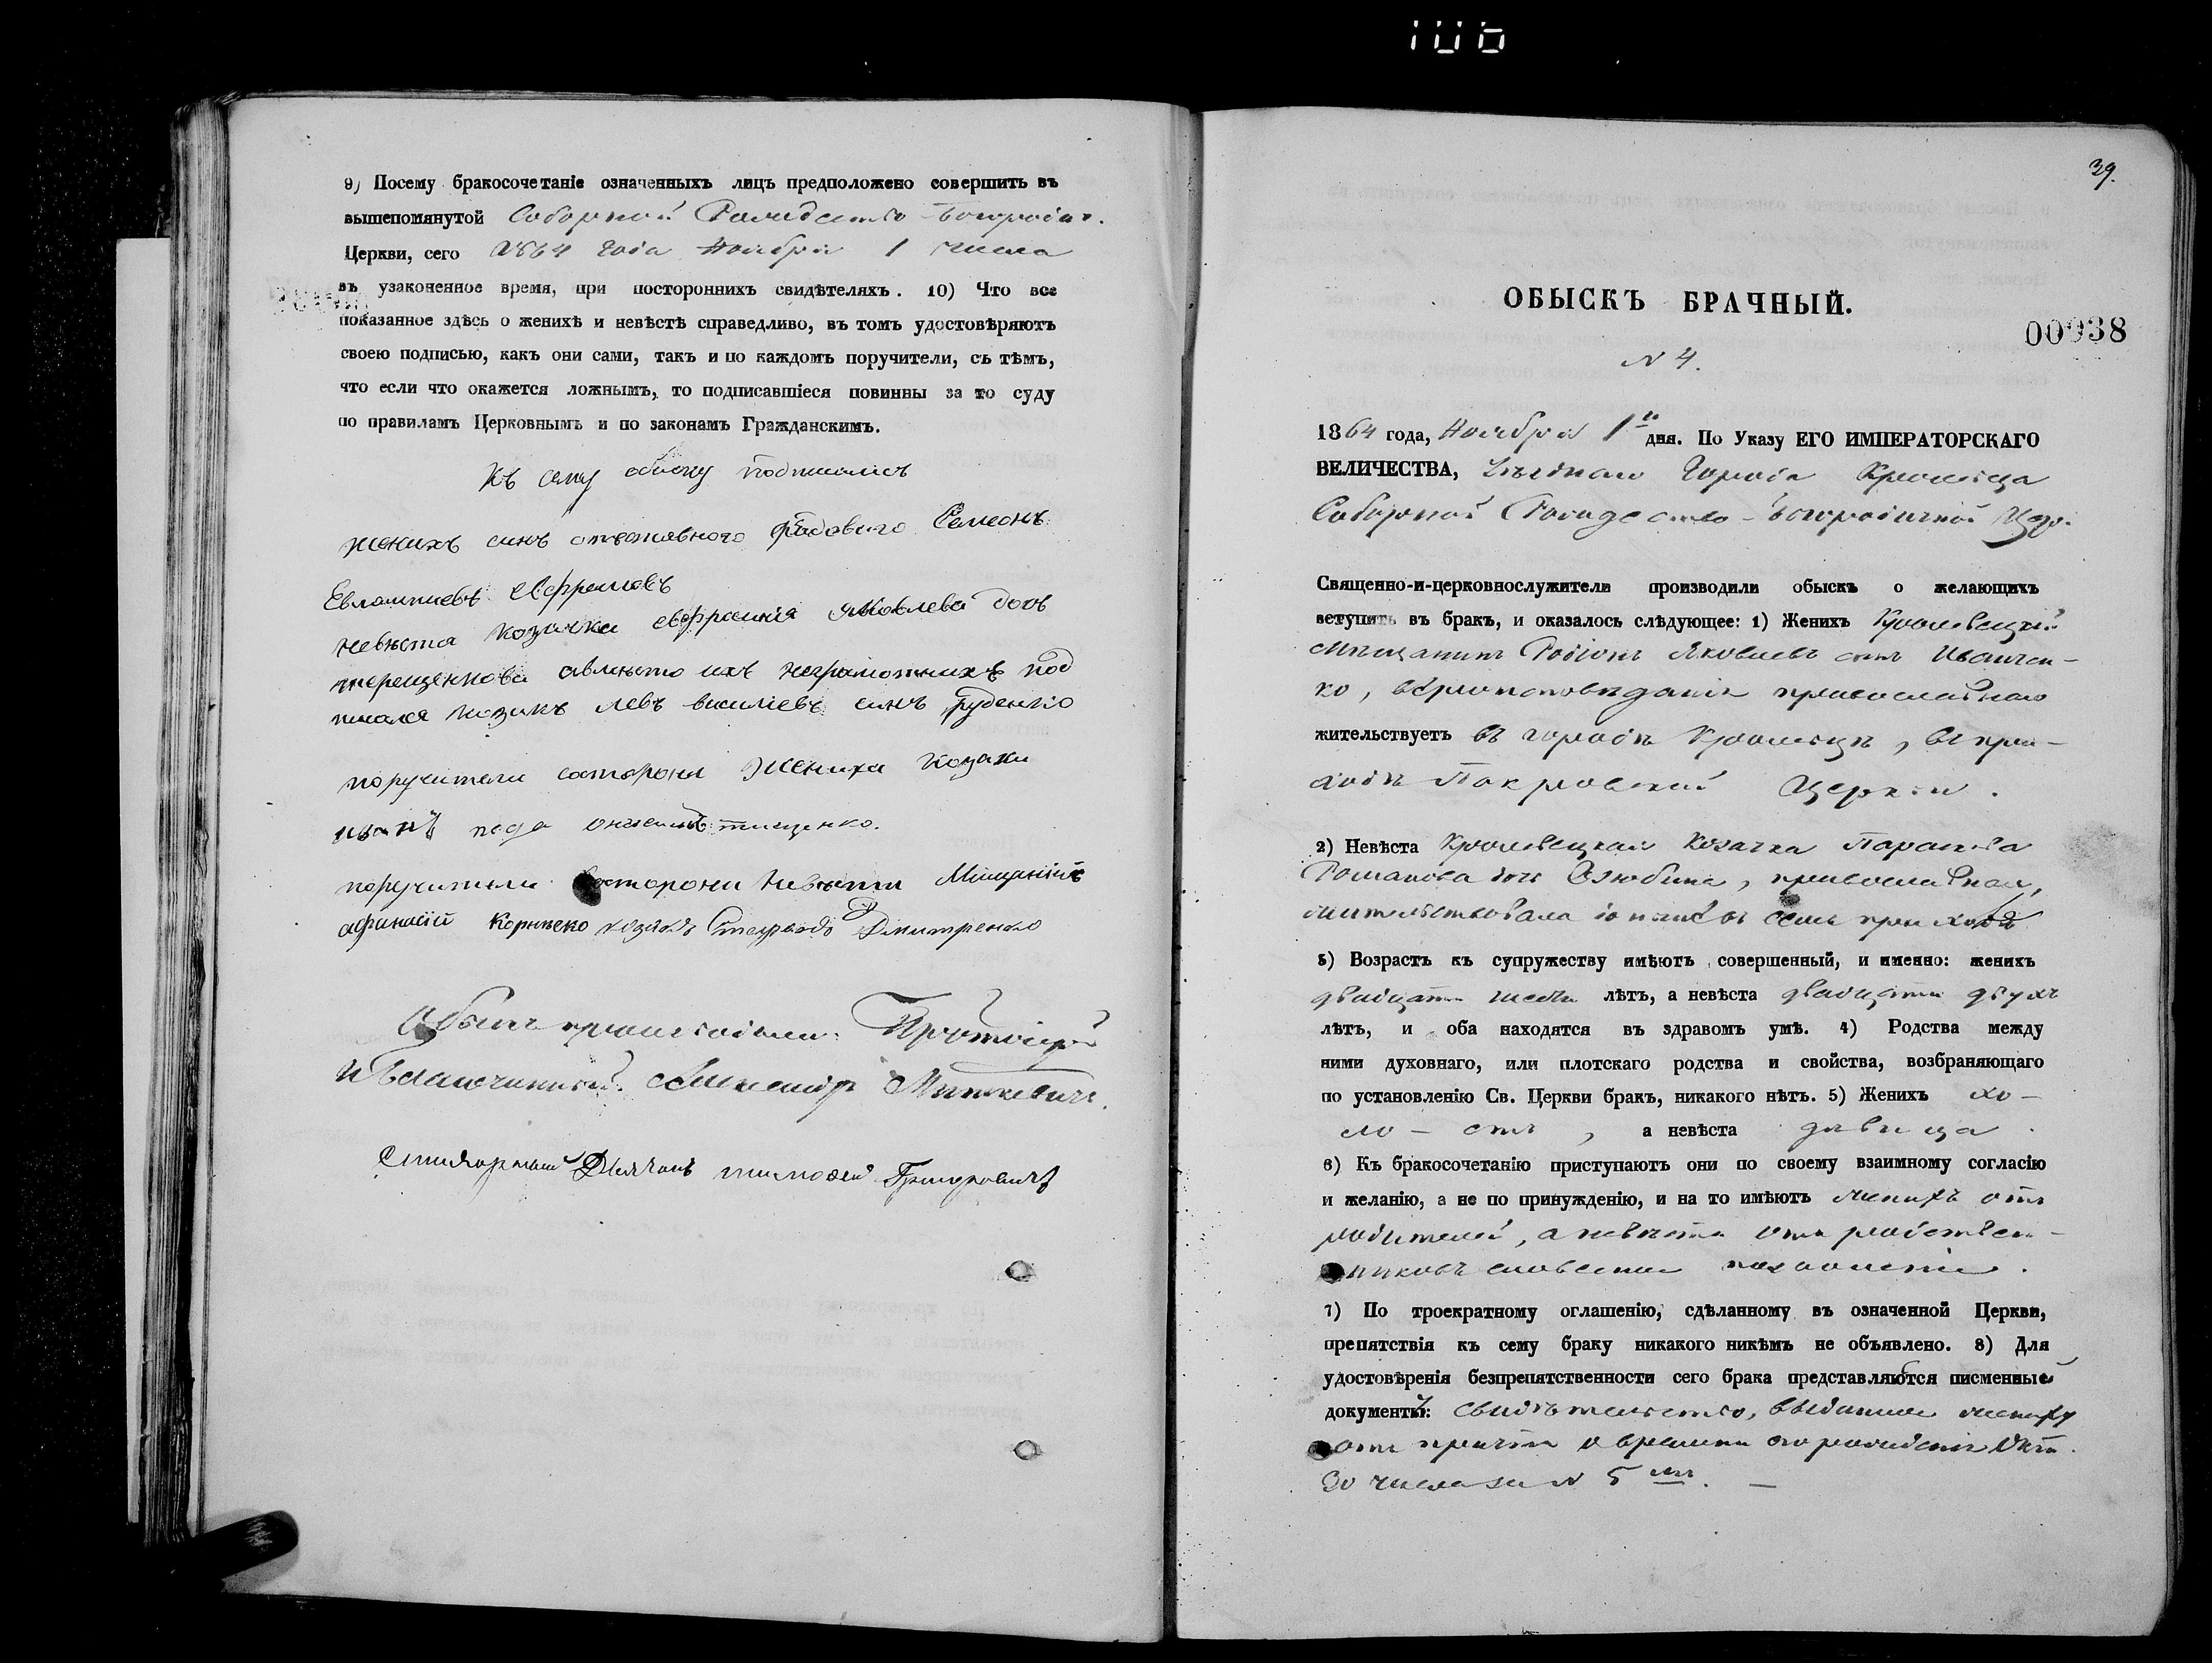 106
9) Посему бракосочетаніе означенныхъ лицъ предположено совершить въ
вышепомянутой Соборной Рождество-Богородич.
Церкви, сего 1864 года Ноября 1 числа
въ узаконенное время, при постороннихъ свидѣтеляхъ. 10) Что все
показанное здѣсь о женихѣ и невѣстѣ справедливо, въ томъ удостовѣряютъ
своею подписью, какъ они сами, такъ и по каждомъ поручители, съ тѣмъ,
что если что окажется ложнымъ, то подписавшіеся повинны за то суду
по правиламъ Церковнымъ и по законамъ Гражданскимъ.
Къ сему обиску подписались
женихъ синъ отставного рядового Семеонъ
Евлампиевъ
невѣста козачка Яковлева дочь
авмѣсто ихъ неграмотнихъ под
писался козакъ левъ василіевъ синъ руденко
поручители состорони жениха козаки
иванъ тищенко.
поручители состорони невѣсти Мищанинъ
афанасій козакъ Дмитренко
Обыскъ производили: Протоіерей
и Благочинный
Стихарный Дьячокъ тимофей Григоровичъ
39.
ОБЫСКЪ БРАЧНЫЙ.
00938
N 4.
1864 года, Ноября 1го дня. По Указу ЕГО ИМПЕРАТОРСКАГО
ВЕЛИЧЕСТВА, Уѣзднаго Города Кролевца
Соборной Рождество-Богородичной Цер.
Священно-и-церковнослужители производили обыскъ о желающихъ
вступить въ бракъ, и оказалось слѣдующее: 1) Женихъ Кролевецкій
Мѣщанинъ Родіонъ Яковлевъ сынъ Иванчен-
ко, вѣроисповѣданія православнаго
жительствуетъ въ городѣ Кролевцѣ, въ при-
ходѣ Покровской Церкви.
2) Невѣста Кролевецкая Козачка Параскева
Романова дочь православная,
жительствовала въ семъ приходѣ
3) Возрастъ къ супружеству имѣютъ совершенный, и именно: женихъ
двадцати лѣтъ, а невѣста двадцати двухъ
лѣтъ, и оба находятся въ здравомъ умѣ. 4) Родства между
ними духовнаго, или плотскаго родства и свойства, возбраняющаго
по установленію Св. Церкви бракъ, никакого нѣтъ. 5) Женихъ хо-
ло-стъ, а невѣста дѣвица.
6) Къ бракосочетанію приступаютъ они по своему взаимному согласію
и желанію, а не по принужденію, и на то имѣютъ женихъ отъ
родителей, а невѣста отъ родствен-
никовъ словесное позволеніе.
7) По троекратному оглашенію, сдѣланному въ означенной Церкви,
препятствія къ сему браку никакого никѣмъ не объявлено. 8) Для
удостовѣренія безпрепятственности сего брака представляются писменные
документы: свидѣтельство, выданное жениху
отъ причта о времени его рожденія Окт.
30 числа за N 5мъ.